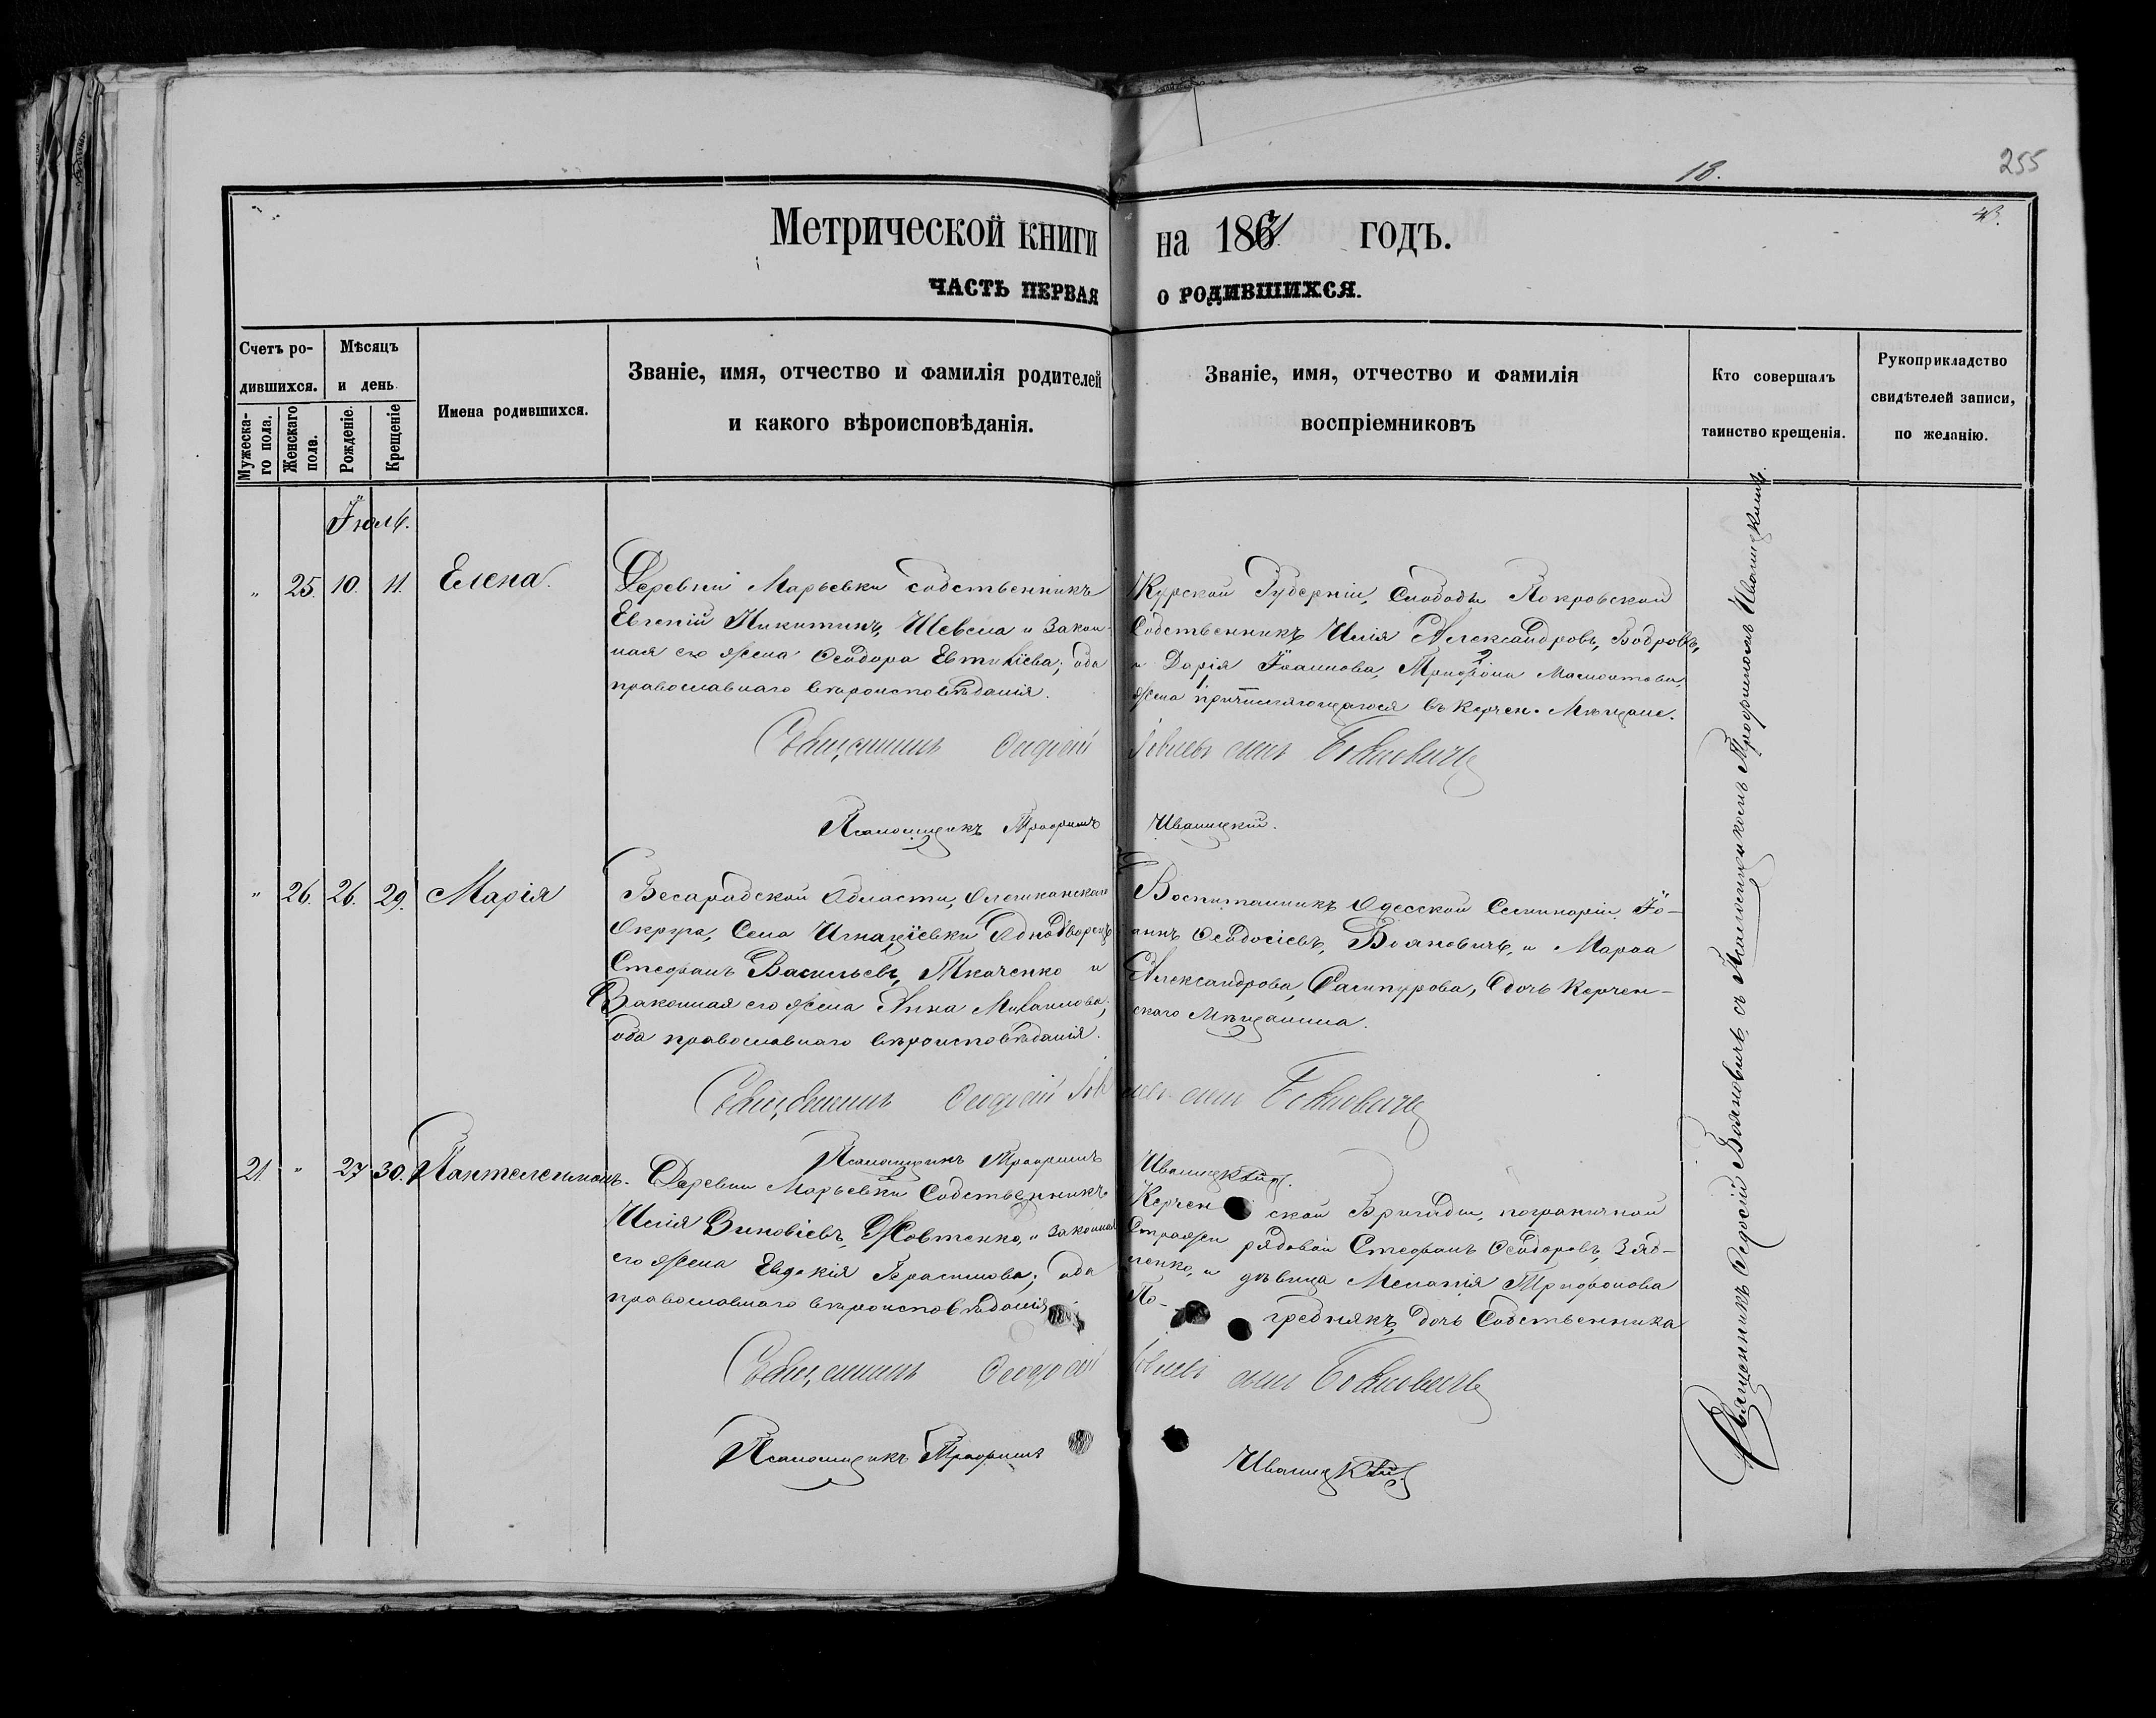 18.
255
Метрической книги на 1867 годъ.
43.
ЧАСТЬ ПЕРВАЯ О РОДИВШИХСЯ.
Счетъ ро-
дившихся.
Мужеска-
го пола.
Женскаго
пола.
Мѣсяцъ
и день
Рожденіе.
Крещеніе
Имена родившихся.
Званіе, имя, отчество и фамилія родителей
и какого вѣроисповѣданія.
Званіе, имя, отчество и фамилія
воспріемниковъ
Кто совершалъ
таинство крещенія.
Рукоприкладство
свидѣтелей записи,
по желанію.
Іюль.
" 25. 10. 11. Елена.
Деревни Марьевки собственникъ
Евгеній Никитинъ, Шевела и закон-
ная его жена Ѳеодора Евтихіева; оба
православнаго вѣроисповѣданія.
Курской Губерніи, Слободы Покровской
Собственникъ Илія Александровъ, Бобровъ,
и Дарія Іоаннова, Трифона Мамонтова,
жена причисляющагося въ Керчен. Мѣщане.
Священникъ Ѳеодосій Іовлевъ сынъ Бояновичъ
Псаломщикъ Трофимъ Иваницкій.
" 26. 26. 29. Марія
Бесарабской Области,
Округа, Села Игнаціевки Однодворецъ
Стефанъ Васильевъ, Ткаченко и
Законная его жена Анна Михаилова;
оба православнаго вѣроисповѣданія.
Воспитанникъ Одесской Семинаріи Іо-
аннъ Ѳеодосіевъ, Бояновичъ, и Марѳа
Александрова, дочь Керчен-
скаго Мѣщанина.
Священникъ Ѳеодосій Іовлевъ сынъ Бояновичъ
Псаломщикъ Трофимъ Иваницкій.
21. " 27. 30. Пантелеимонъ.
Деревни Марьевки Собственникъ
Илія Зиновіевъ, Жовтенко, и законная
его жена Евдокія Герасимова; оба
православнаго вѣроисповѣданія
Керченской Бригады, пограничной
Стражи рядовой Стефанъ Ѳеодоровъ, Зяб-
ленко, и дѣвица Меланія Трифонова
По-
гребнякъ, дочь Собственника
Священникъ Ѳеодосій Іовлевъ сынъ Бояновичъ
Псаломщикъ Трофимъ Иваницкій
Священникъ Ѳедосій Бояновичъ съ Псаломщикомъ Трофимомъ Иваницкимъ.